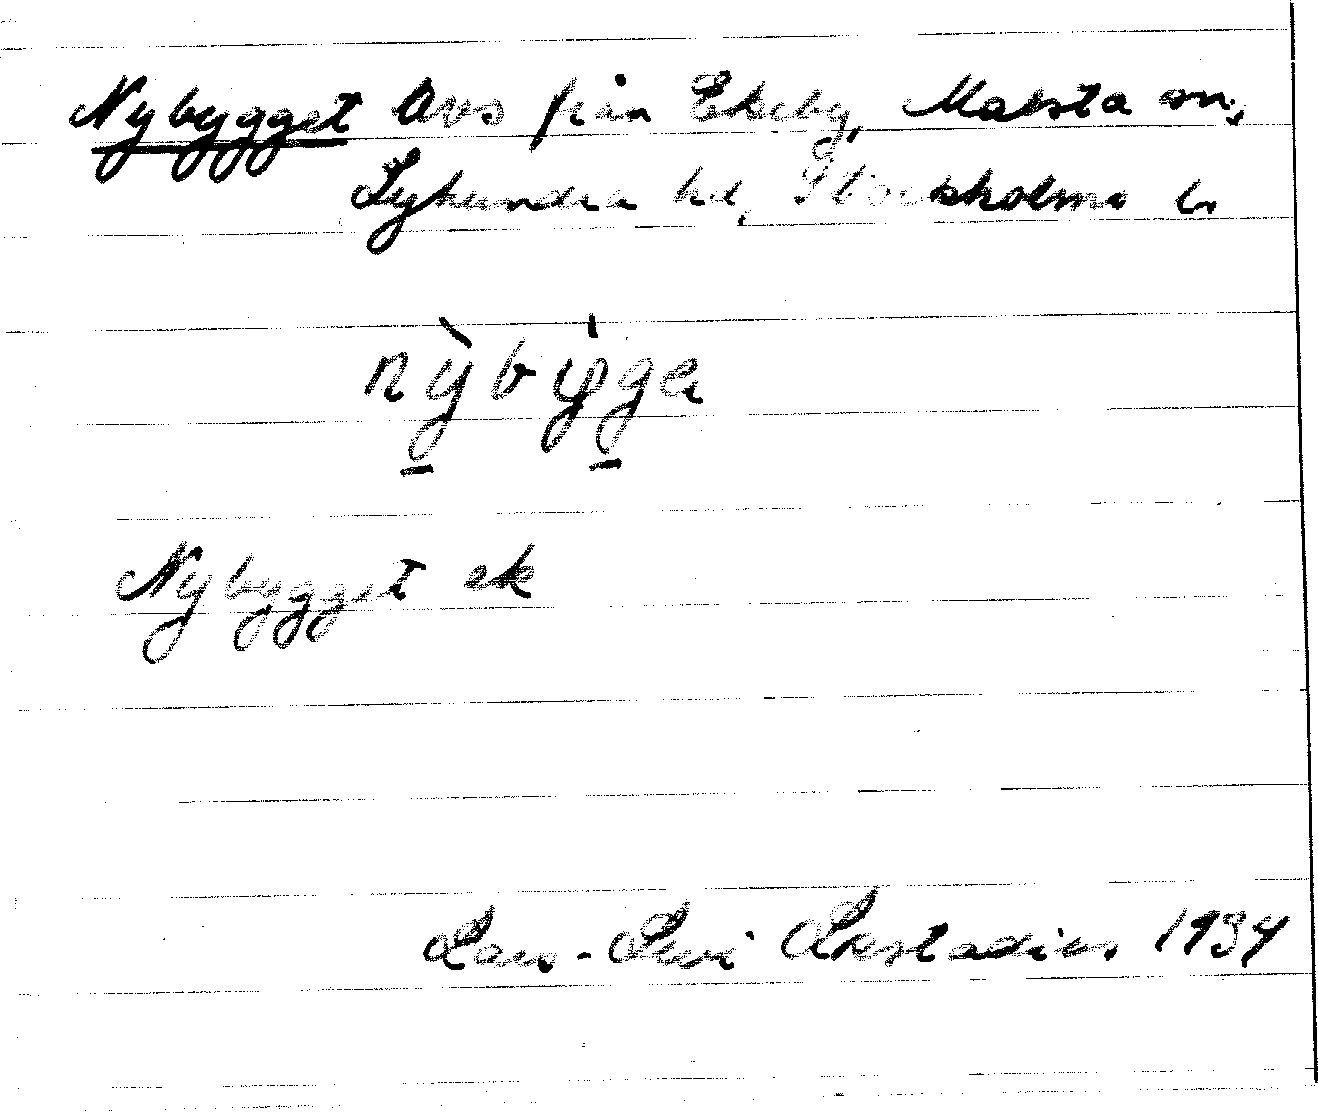 Nybygget Avs från Ekeby, Malsta sn,
Lyhundra hd, Stockholms l.
nỳbýge
Nybygget ek
Lars-Levi Læstadius 1934